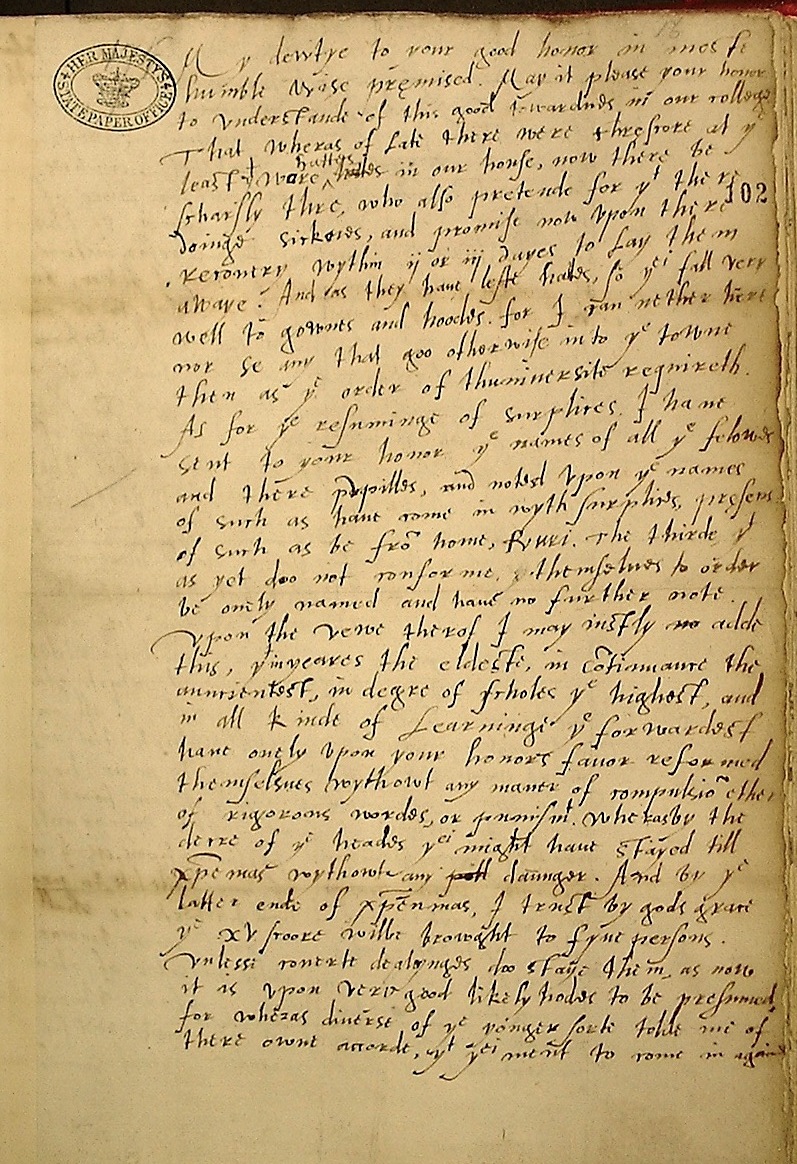 HER MAJESTY'S STATE PAPER OFFICE
18
My dewtye to your good honor in moste
humble wise premised. May it please your honor
to understande of this good towardnes in our college
That wheras of late there were threscore at ye
least yt ware hattes in our house, now there be
scharsly thre, who also pretende for yt there
102
doinge sicknes, and promise now upon there
recovery wythin ij or iij dayes to lay them
awaye. And as they have lefte hattes, so yei fall very
well to gownes and hoodes. for I can nether here
nor se any that goo otherwise into ye towne
then as ye order of thuniversite requireth.
As for ye resuminge of surplices, I have
sent to your honor ye names of all ye felowes
and there pupilles, and noted upon ye names
of such as have come in wyth surplices, presens
of such as be frō home, ruri. The thirde yt
as yet doo not conforme themselves to order
be onely named and have no further note.
Upon the vewe therof I may justly adde
this, yt in yeares the eldeste, in cōtinuance the
auncientest, in degre of scholes ye highest, and
in all kinde of Learninge ye forwardest
have onely upon your honors favor reformed
themselves wythowt any maner of compulsiō ether
of rigorous wordes, or punismt. Wheras by the
decre of ye heades yei might have stayed till
xp̄enmas wythowt any daunger. And by ye
latter ende of xp̄enmas, I trust by gods grace
ye xv scoore wilbe browght to fyve persons.
Unlesse coverte dealynges doo staye them, as now
it is upon very good likelyhodes to be presumed.
for wheras diverse of ye yonger sorte tolde me of
there owne accorde, yt yei ment to come in agains